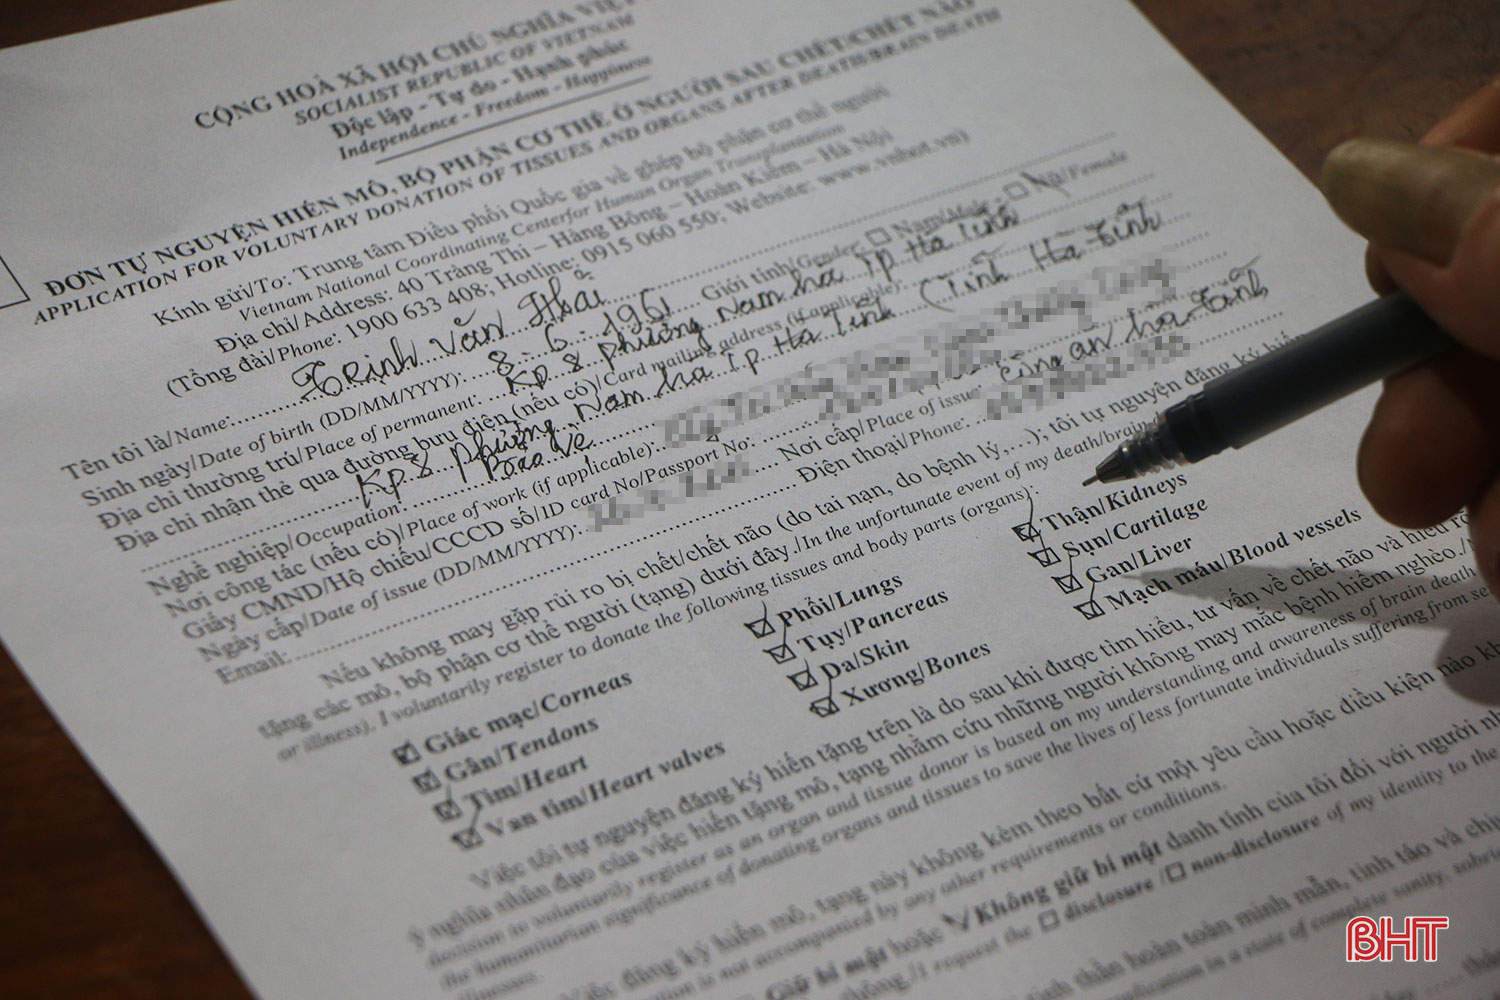 CỘNG HOÀ XÃ HỘI CHỦ NGHĨA VIỆT
SOCIALIST REPUBLIC OF VIETNAM
Độc lập - Tự do - Hạnh phúc
Independence - Freedom - Happiness
ĐƠN TỰ NGUYỆN HIẾN MÔ, BỘ PHẬN CƠ THỂ Ở NGƯỜI SAU CHẾT/CHẾT NÃO
APPLICATION FOR VOLUNTARY DONATION OF TISSUES AND ORGANS AFTER DEATH/BRAIN DEATH
Kính gửi/To: Trung tâm Điều phối Quốc gia về ghép bộ phận cơ thể người
Vietnam National Coordinating Centerfor Human Organ Transplantation
Địa chỉ/Address: 40 Tràng Thi – Hàng Bông – Hoàn Kiếm – Hà Nội
(Tổng đài/Phone: 1900 633 408; Hotline: 0915 060 550; Website: www.vnhot.vn)
Tên tôi là/Name: Trịnh Văn Thái
Sinh ngày/Date of birth (DD/MM/YYYY): 8 - 6 - 1961 Giới tính/Gender: Nam/Male Nữ/Female
Địa chỉ thường trú/Place of permanent: Kp 8 phường Nam hà Tp Hà Tĩnh
Địa chỉ nhận thẻ qua đường bưu điện (nếu có)/Card mailing address (if applicable):
Kp 8 phường Nam hà Tp Hà Tĩnh (Tỉnh Hà Tĩnh
Nghề nghiệp/Occupation: Bảo vệ
Nơi công tác (nếu có)/Place of work (if applicable):
Giấy CMND/Hộ chiếu/CCCD số/ID card No/Passport No: Nơi cấp/Place of issue: Công an hà Tĩnh
Ngày cấp/Date of issue (DD/MM/YYYY): Điện thoại/Phone:
Email:
Nếu không may gặp rủi ro bị chết/chết não (do tai nạn, do bệnh lý,...), tôi tự nguyện đăng ký hiến
tặng các mô, bộ phận cơ thể người (tạng) dưới đây./In the unfortunate event of my death/brain
or illness), I voluntarily register to donate the following tissues and body parts (organs):
Giác mạc/Corneas Phổi/Lungs Thận/Kidneys
Gân/Tendons Tụy/Pancreas Sụn/Cartilage
Tim/Heart Da/Skin Gan/Liver
Van tim/Heart valves Xương/Bones Mạch máu/Blood vessels
Việc tôi tự nguyện đăng ký hiến tặng trên là do sau khi được tìm hiểu, tư vấn về chết não và hiểu rõ
ý nghĩa nhân đạo của việc hiến tặng mô, tạng nhằm cứu những người không may mắc bệnh hiểm nghèo./
decision to voluntarily register as an organ and tissue donor is based on my understanding and awareness of brain death
the humanitarian significance of donating organs and tissues to save the lives of less fortunate individuals suffering from
illnesses.
Việc đăng ký hiến mô, tạng này không kèm theo bất cứ một yêu cầu hoặc điều kiện nào
is not accompanied by any other requirements or conditions.
Giữ bí mật hoặc Không giữ bí mật danh tính của tôi đối với người
I request the disclosure / non-disclosure of my identity to the
thần hoàn toàn minh mẫn, tỉnh táo và
in a state of complete sanity,
BHT